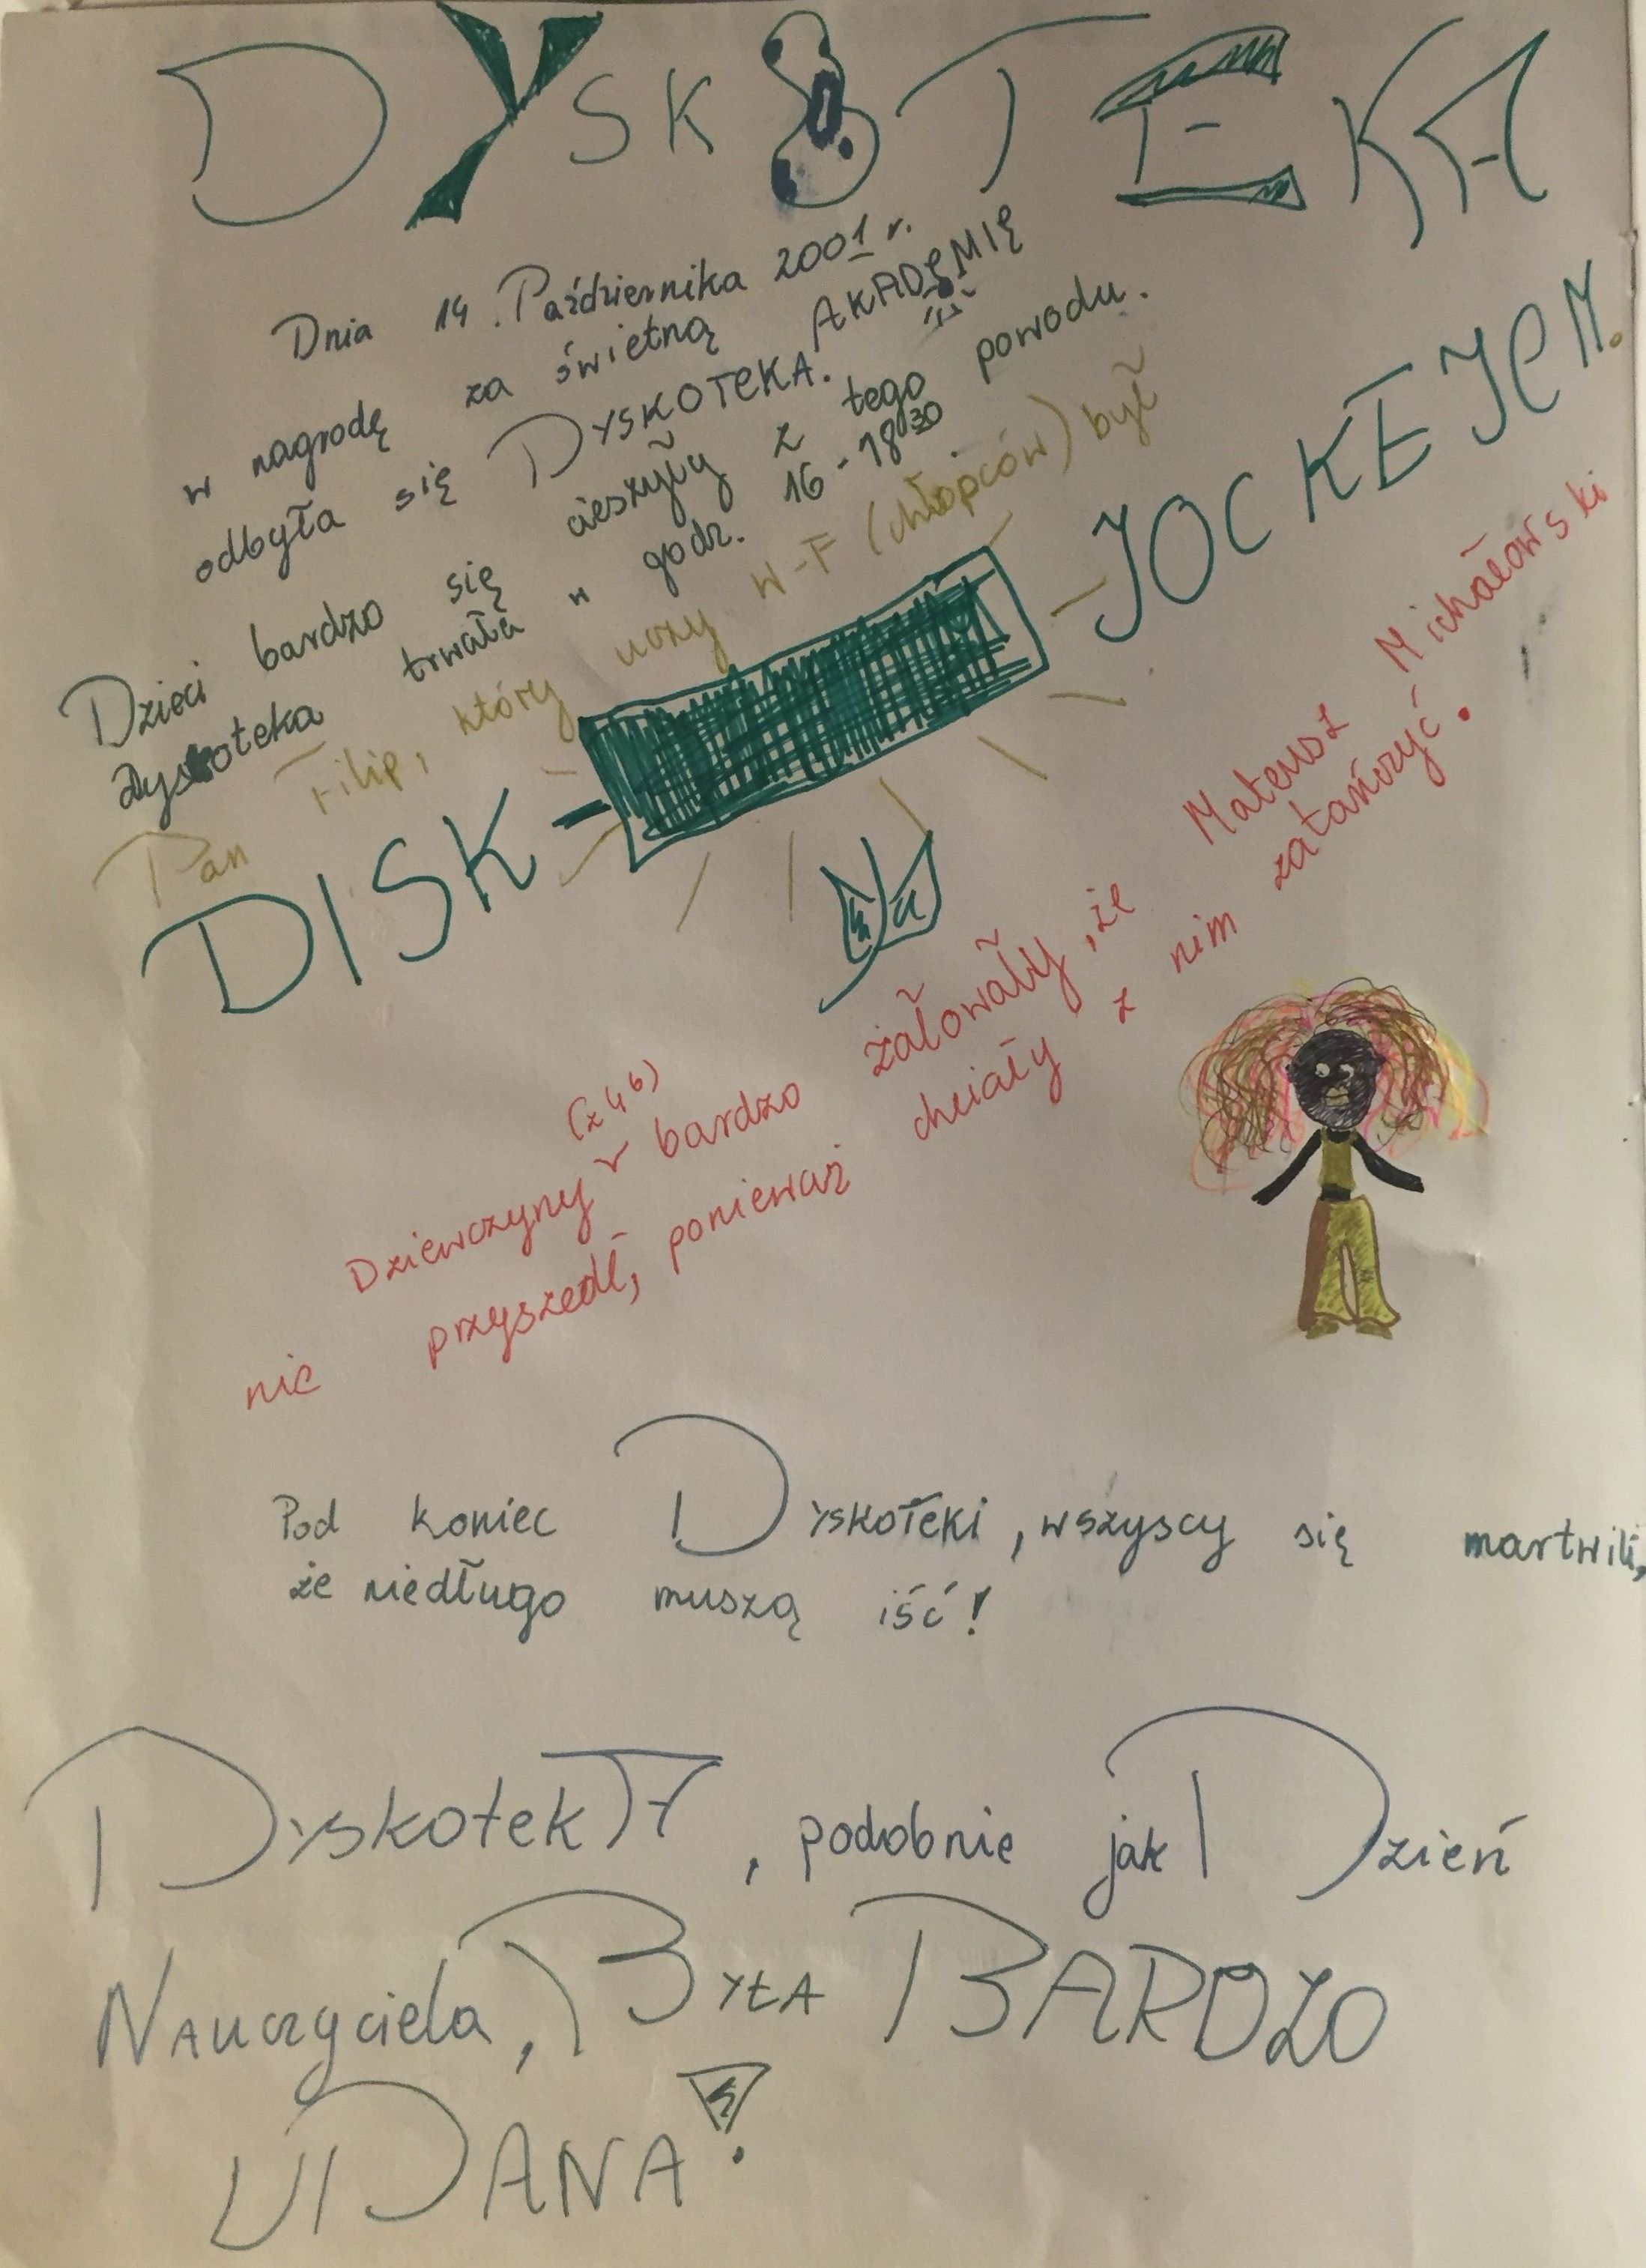 DYSKOTEKA
Dnia 14. Października 2001 r.
w nagrodę za świetną AKADĘMIĘ
odbyła się DYSKOTEKA.
Dzieci bardzo się cieszyły z tego powodu.
Dyskoteka trwała w godz. 16-18³⁰
Pan Filip, który uczy w-F (chłopców) był
DISK - JOCKEJEM.
(z 4 b)
Dziewczyny bardzo żałowały, że Mateusz Michałowski
nie przyszedł, ponieważ chciały z nim zatańczyć.
Pod koniec Dyskoteki, wszyscy się martwili,
że niedługo muszą iść!
DyskotekA, podobnie jak Dzień
Nauczyciela, BYŁA BARDZO
UDANA!